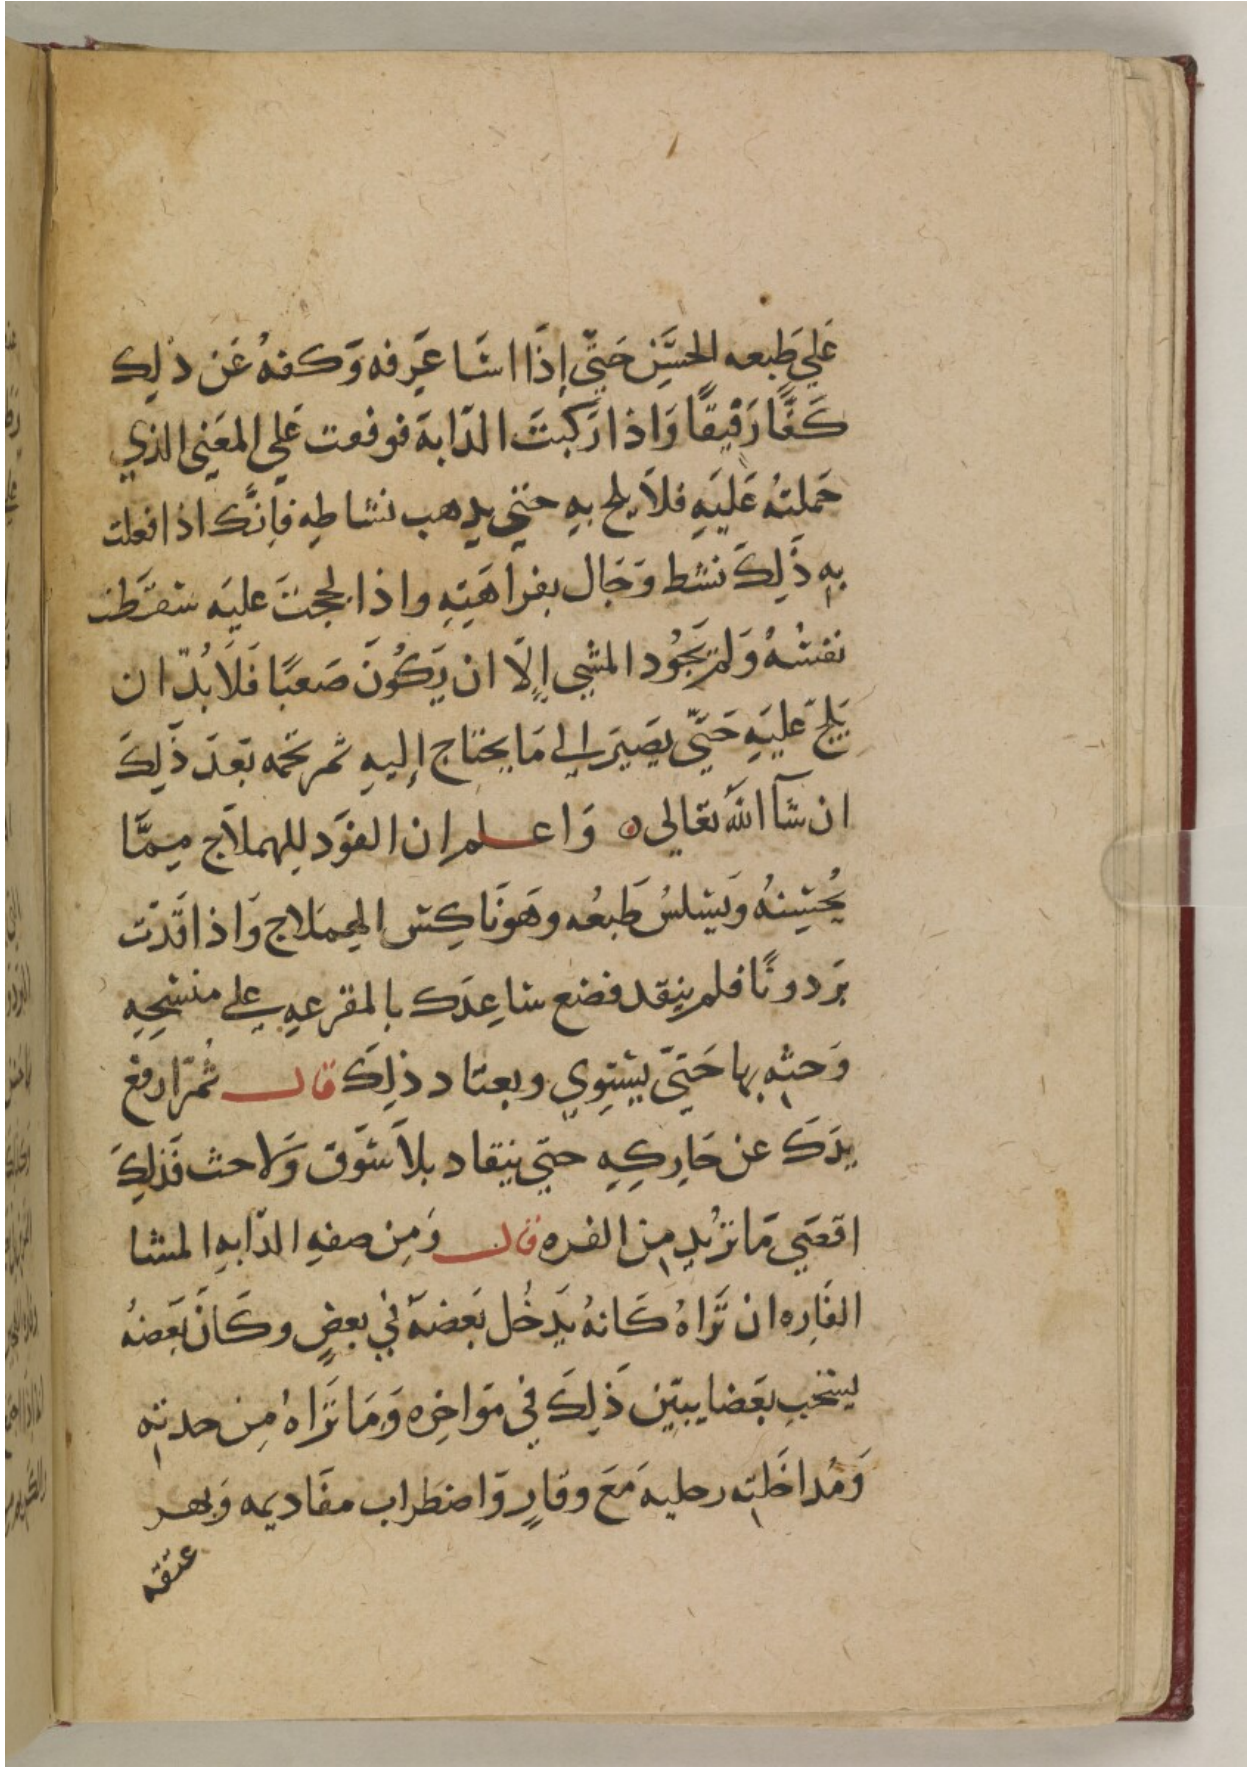 عَلي طَبعه الحسَّن حَتيّ إذَا اسَّا عَرِفه وَكفهُ عَن ذلِك
كَفًّا رَقيقًا وَاذا رَكبتَ الدّابة فوقعت عَلي المعَني الذي
حَملتهُ عَليَهِ فلاَ يلح بهِ حتي يدهب نشاطهِ فإنَّك اذا فعلت
بهِ ذَلِكَ نشط وَجَال بفراهَتِهِ واذا لججتَ عليَه سَقَطت
نفسُهُ وَلم يَجُود المشي إلَا ان يَكُونَ صَعبًا فَلَا بُدّ ان
يَلجّ عليَهِ حَتيّ يصَير الي مَا يحتاج إليهِ ثم تجمه بَعدَ ذَلِكَ
ان شآ اللهُ تعَالي وَاعلم ان القوَد للهملاَج مِمَّا
يُحسِنهُ وَيسلسُ طَبعُه وهَو نَاكِس الهمَلاج وَاذا قَدَت
بَردونًا فلم ينقد فضع سَاعِدَك بالمقرعهِ علي منسَجِهِ
وَحثهِ بها حَتيّ يستوِي ويعتاد ذلِكَ قال ثُمّ ارفع
يدَكَ عن حَارِكهِ حتي ينقاد بلاَ سَوَق وَلا حث فَذلِكَ
اقصَي مَا تُريد مِن الفره قال وَمِن صفهِ الدّابهِ المشا
الفَارِه ان تَراهُ كَانهُ يَدخُل بَعضهَ في بعضٍ وكَانَّ بَعضهُ
يسحَب بعَضا يبيّن ذَلِكَ في مَواخِره وَمَا تَراهُ مِن حدتهِ
وَمُداخَلتِه رجليهِ مَعَ وقارٍ وَاضطراب مقَاديمه وَبهر
عنقه